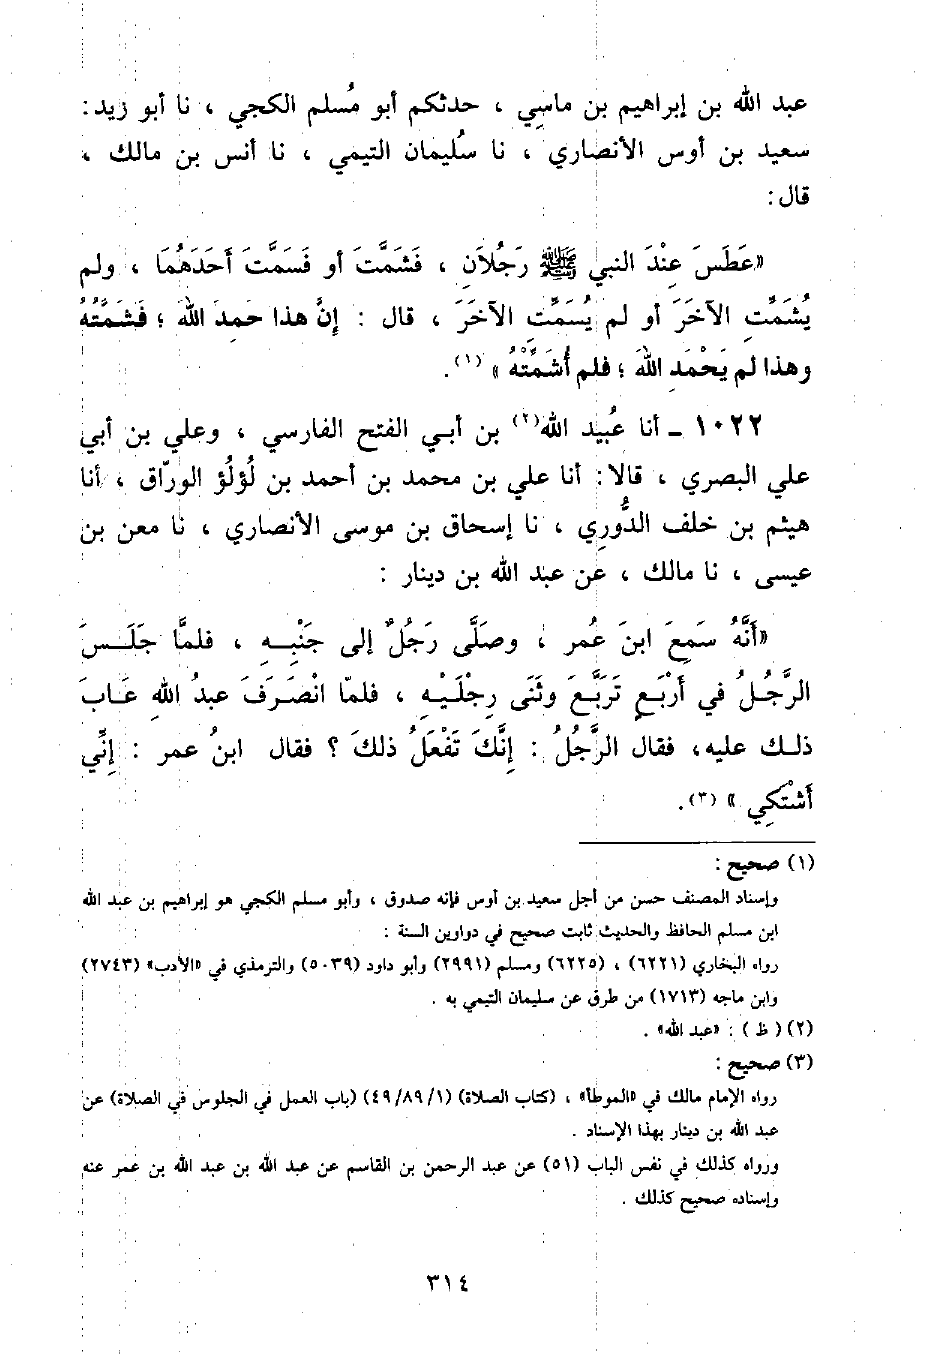 عبد الله بن إبراهيم بن ماسِي ، حدثكم أبو مُسلم الكجي ، نا أبو زيد:
سعيد بن أوس الأنصاري ، نا سُليمان التيمي ، نا أنس بن مالك ،
قال:
«عَطَسَ عِنْدَ النبي ﷺ رَجُلاَنِ ، فَشَمَّتَ أو فَسَمَّتَ أَحَدَهُمَا ، ولم
يُشَمِّتِ الآخَرَ أو لم يُسَمِّتِ الآخَرَ ، قال : إِنَّ هذا حَمِدَ اللهَ ؛ فَشَمَّتُهُ
وهذا لم يَحْمَدِ اللهَ ؛ فلم أُشَمِّتْهُ» (١).
١٠٢٢ ـ أنا عُبيد الله(٢) بن أبي الفتح الفارسي ، وعلي بن أبي
علي البصري ، قالا: أنا علي بن محمد بن أحمد بن لُؤلُؤ الورّاق ، أنا
هيثم بن خلف الدُّورِي ، نا إسحاق بن موسى الأنصاري ، نا معن بن
عيسى ، نا مالك ، عن عبد الله بن دينار :
«أَنَّهُ سَمِعَ ابنَ عُمر ، وصَلَّى رَجُلٌ إلى جَنْبِهِ ، فلمَّا جَلَسَ
الرَّجُلُ في أَرْبَعٍ تَرَبَّعَ وثَنَى رِجْلَيْهِ ، فلمّا انْصَرَفَ عبدُ اللهِ عَابَ
ذلك عليه، فقال الرَّجُلُ : إِنَّكَ تَفْعَلُ ذلكَ ؟ فقال ابنُ عمر : إِنِّي
أَشْتَكِي» (٣).
(١) صحيح :
وإسناد المصنف حسن من أجل سعيد بن أوس فإنه صدوق ، وأبو مسلم الكجي هو إبراهيم بن عبد الله
ابن مسلم الحافظ والحديث ثابت صحيح في دواوين السنة :
رواه البخاري (٦٢٢١) ، (٦٢٢٥) ومسلم (٢٩٩١) وأبو داود (٥٠٣٩) والترمذي في «الأدب» (٢٧٤٣)
وابن ماجه (١٧١٣) من طرق عن سليمان التيمي به .
(٢) ( ظ ) : «عبد الله» .
(٣) صحيح :
رواه الإمام مالك في «الموطأ» ، (كتاب الصلاة) (٤٩/٨٩/١) (باب العمل في الجلوس في الصلاة) عن
عبد الله بن دينار بهذا الإسناد .
ورواه كذلك في نفس الباب (٥١) عن عبد الرحمن بن القاسم عن عبد الله بن عبد الله بن عمر عنه
وإسناده صحيح كذلك .
٣١٤